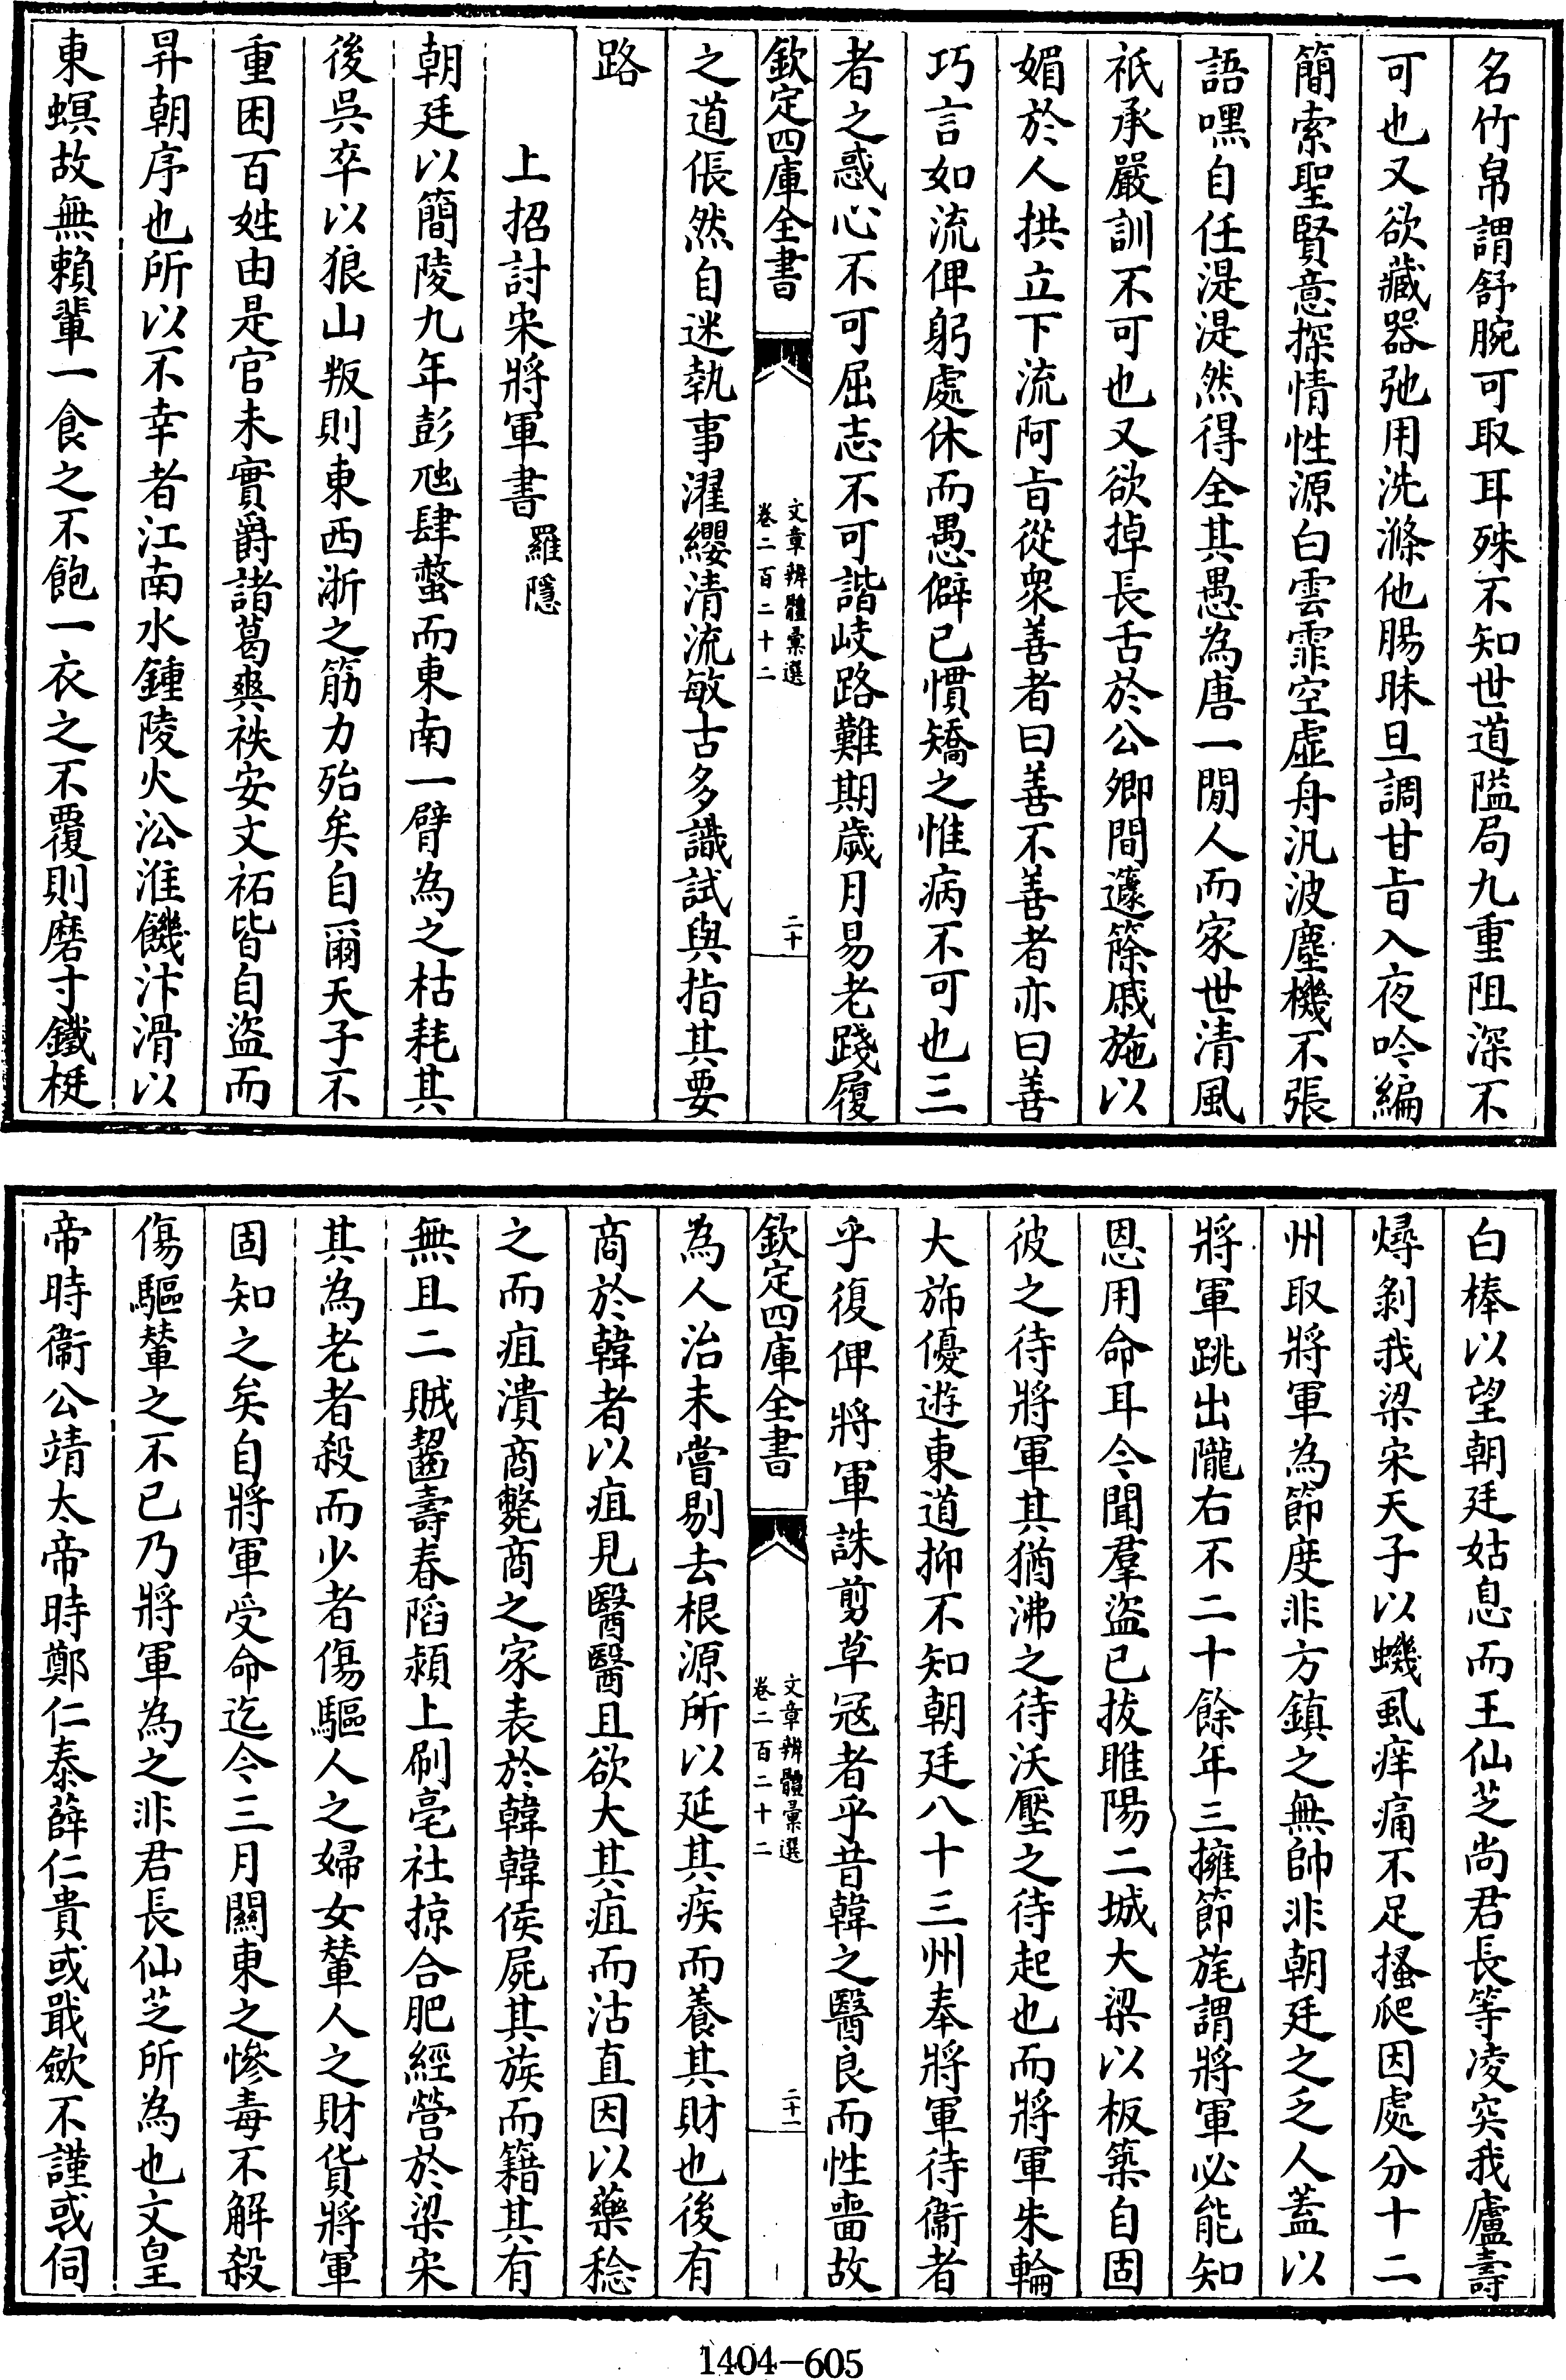 名竹帛謂舒腕可取耳殊不知世道隘局九重阻深不
可也又欲藏器弛用洗滌他腸昧旦調甘旨入夜吟編
簡索聖賢意探情性源白雲霏空虛舟汎波塵機不張
語嘿自任湜湜然得全其愚為唐一閒人而家世清風
祇承嚴訓不可也又欲掉長舌於公卿間蘧篨戚施以
媚於人拱立下流阿旨從衆善者曰善不善者亦曰善
巧言如流俾躬處休而愚僻已慣矯之惟病不可也三
者之惑心不可屈志不可諧岐路難期歲月易老踐履
欽定四庫全書
文章辨體彙選
卷二百二十二
二十
之道倀然自迷執事濯纓清流敏古多識試與指其要
路
上招討宋將軍書 羅隱
朝廷以簡陵九年彭虺肆螫而東南一臂為之枯耗其
後吳卒以狼山叛則東西浙之筋力殆矣自爾天子不
重困百姓由是官未實爵諸葛爽秩安文祐皆自盜而
昇朝序也所以不幸者江南水鍾陵火㳂淮饑汴滑以
東螟故無賴輩一食之不飽一衣之不覆則磨寸鐵梃
白棒以望朝廷姑息而王仙芝尚君長等凌突我廬壽
燖剝我梁宋天子以蟣虱痒痛不足搔爬因處分十二
州取將軍為節度非方鎮之無帥非朝廷之乏人蓋以
將軍跳出隴右不二十餘年三擁節旄謂將軍必能知
恩用命耳今聞羣盜已拔睢陽二城大梁以板築自固
彼之待將軍其猶沸之待沃壓之待起也而將軍朱輪
大斾優遊東道抑不知朝廷八十三州奉將軍待衞者
乎復俾將軍誅剪草冦者乎昔韓之醫良而性嗇故
欽定四庫全書
文章辨體彙選
卷二百二十二
二十一
為人治未嘗剔去根源所以延其疾而養其財也後有
商於韓者以疽見醫醫且欲大其疽而沽直因以藥稔
之而疽潰商斃商之家表於韓韓侯屍其族而籍其有
無且二賊齧壽春陷潁上刷亳社掠合肥經營於梁宋
其為老者殺而少者傷驅人之婦女輦人之財貨將軍
固知之矣自將軍受命迄今三月關東之慘毒不解殺
傷驅輦之不已乃將軍為之非君長仙芝所為也文皇
帝時衞公靖太帝時鄭仁泰薛仁貴或戢歛不謹或伺
1404-605